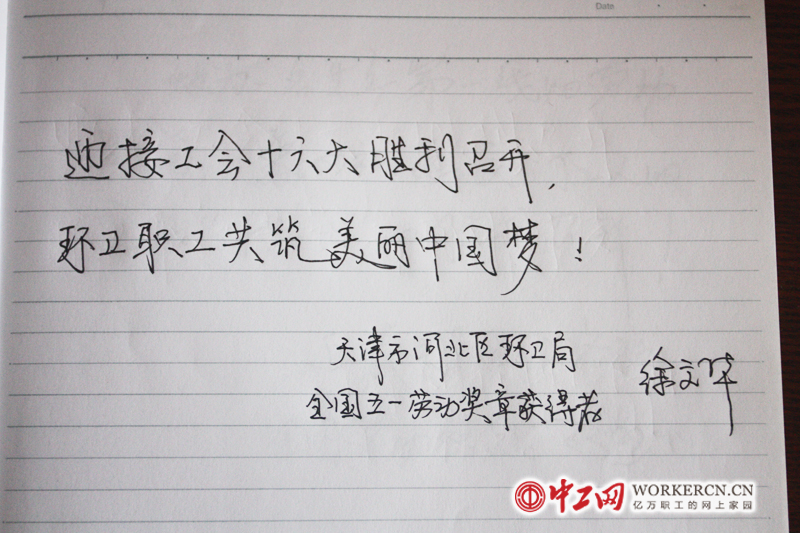 Date
迎接工会十六大胜利召开,
环卫职工共筑美丽中国梦!
天津市河北区环卫局
全国五一劳动奖章获得者 徐文华
中工网 WORKERCN.CN
亿万职工的网上家园